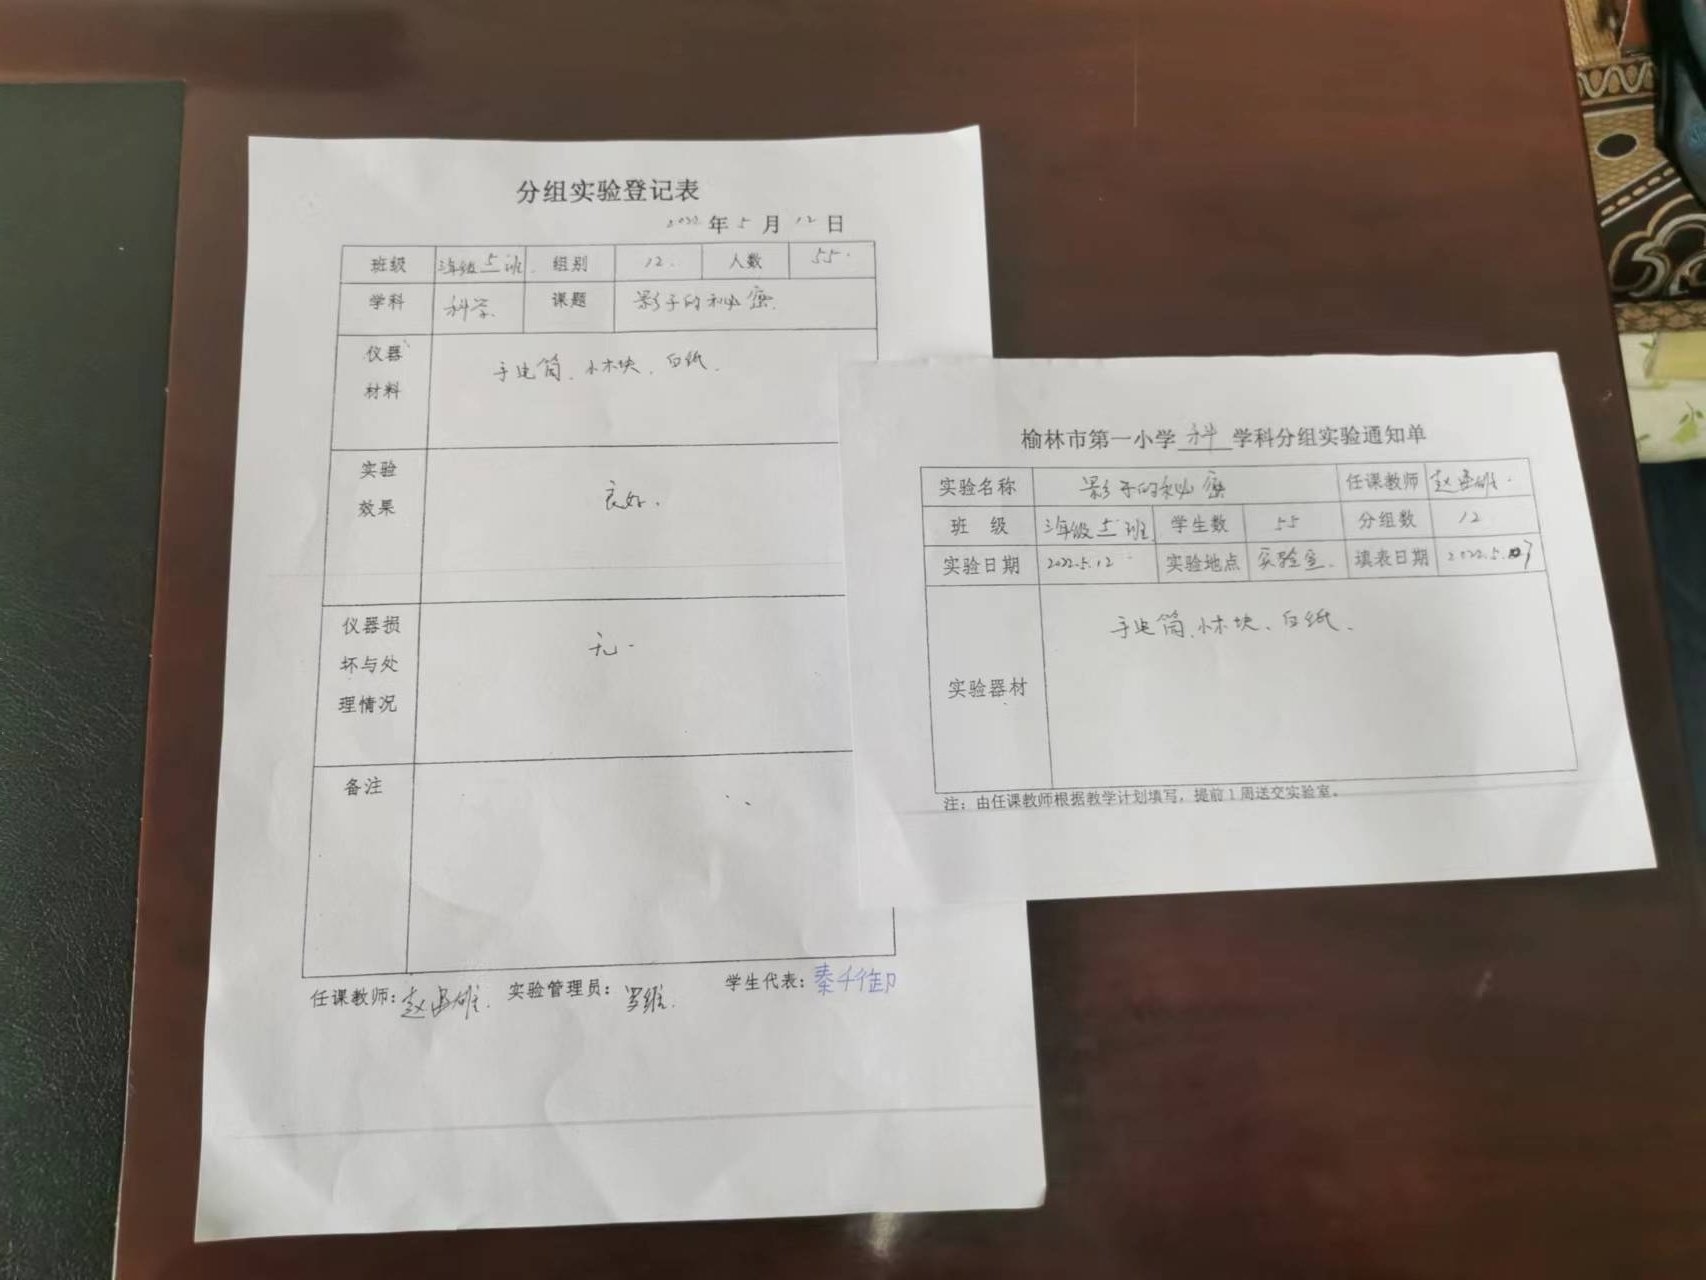 分组实验登记表
2022年5月12日
班级 三年级五班 组别 12 人数 55
学科 科学 课题 影子的秘密
仪器材料 手电筒、小木块、白纸
实验效果 良好
仪器损坏与处理情况 无
备注
任课教师: 赵 雄 实验管理员: 罗维 学生代表: 秦千御
榆林市第一小学 科 学科分组实验通知单
实验名称 影子的秘密 任课教师 赵 雄
班 级 三年级五班 学生数 55 分组数 12
实验日期 2022.5.12 实验地点 实验室 填表日期 2022.5.
实验器材 手电筒、小木块、白纸
注：由任课教师根据教学计划填写，提前1周送交实验室。